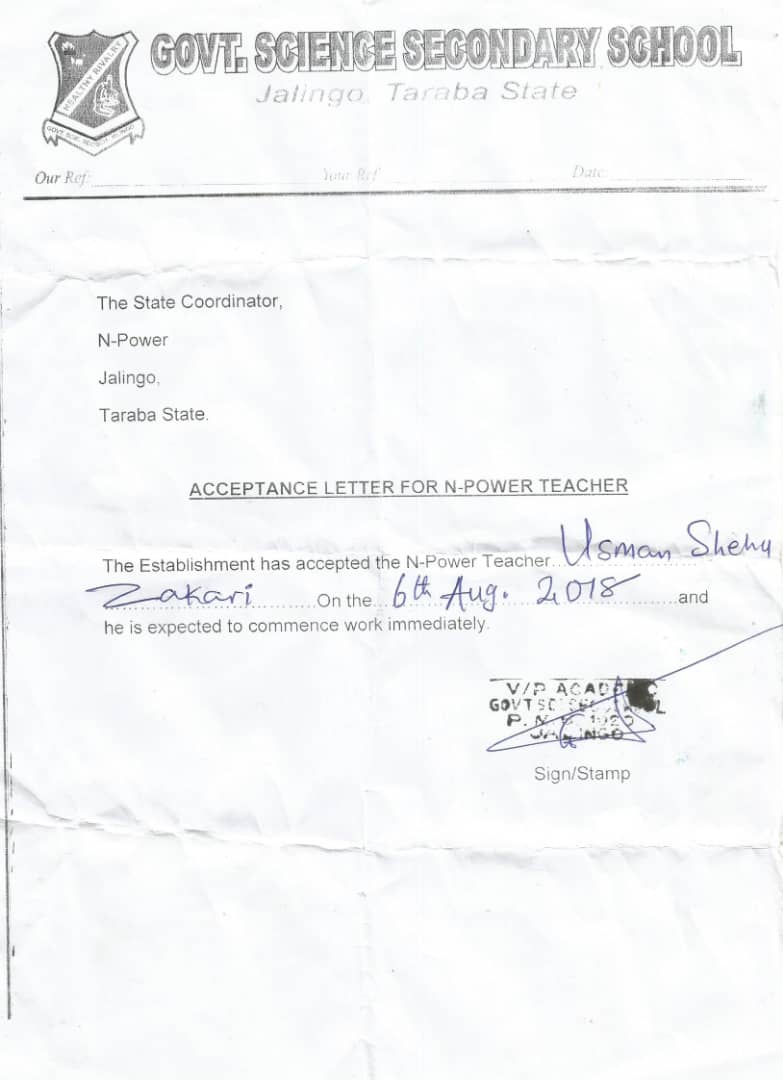 GOVT. SCIENCE SECONDARY SCHOOL
Jalingo, Taraba State
HEALTHY RIVALRY
Our Ref: Your Ref Date:
The State Coordinator,
N-Power
Jalingo,
Taraba State.
ACCEPTANCE LETTER FOR N-POWER TEACHER
The Establishment has accepted the N-Power Teacher Usman Shehu
Zakari On the 6th Aug. 2018 and
he is expected to commence work immediately.
V/P
GOVT
JALINGO
Sign/Stamp